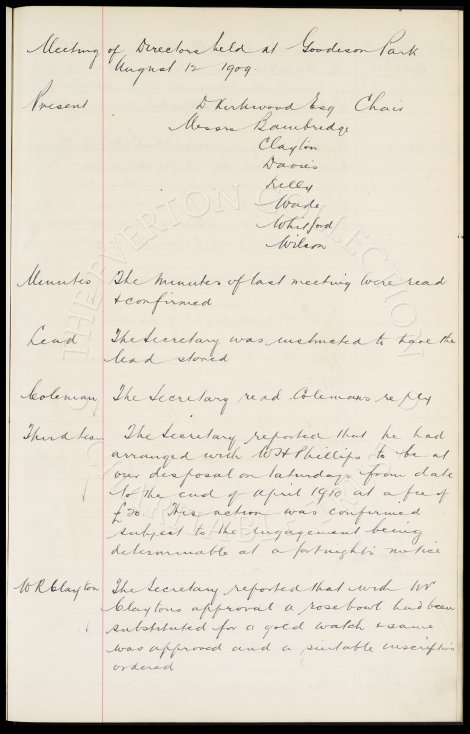 Meeting of Directors held at Goodison Park
August 12 1909.
Present D Kirkwood Esq Chair
Messrs Bainbridge
Clayton
Davies
Kelly
Wade
Whitford
Wilson
Minutes The minutes of last meeting were read
& confirmed
Lead The Secretary was instructed to have the
lead stored
Coleman The Secretary read Colemans reply
Third team The Secretary reported that he had
arranged with W H Phillips to be at
our disposal on Saturdays from date
to the end of April 1910 at a fee of
£20. This action was confirmed
subject to the engagement being
determinable at a fortnight's notice
W R Clayton The Secretary reported that with Mr
Claytons approval a rosebowl had been
substituted for a gold watch & same
was approved and a suitable inscription
ordered
THE EVERTON COLLECTION